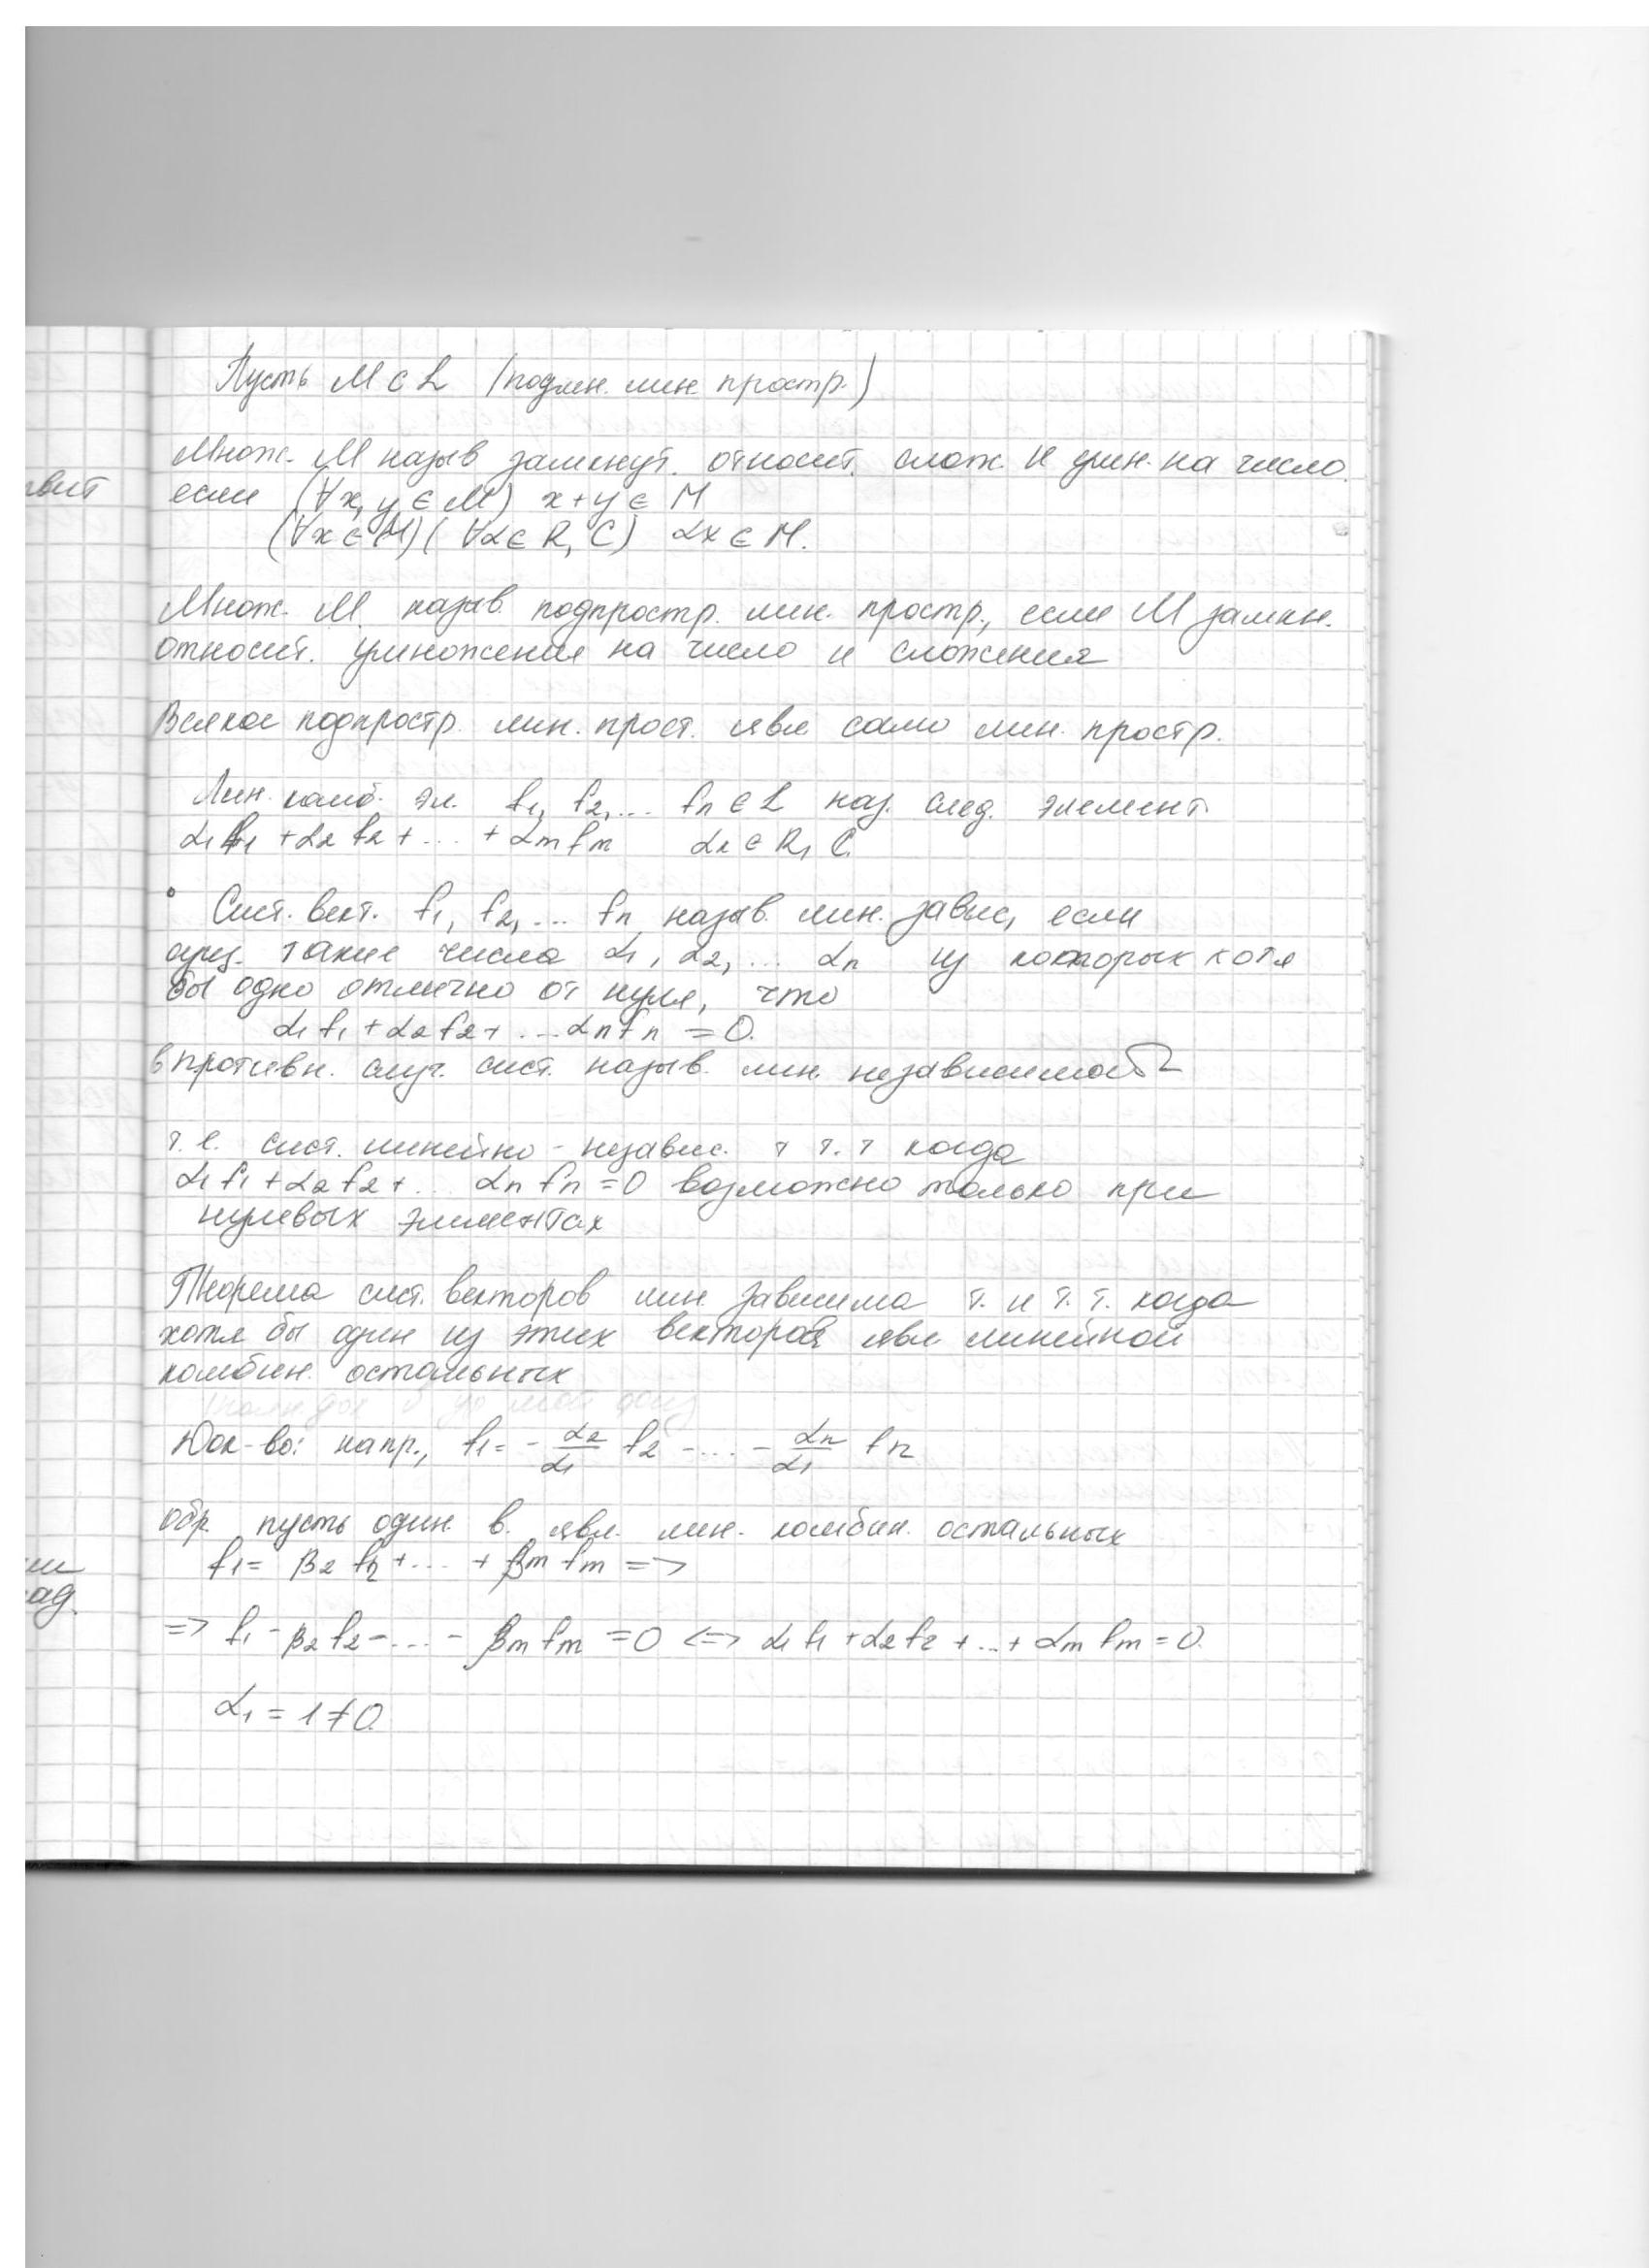 Пусть M ⊂ L (подмн. лин. простр.)
Множ. M назыв замкнут. относит. слож. и умн. на число.
если (∀x, y ∈ M) x+y ∈ M
(∀x ∈ M)(∀α ∈ R, C) αx ∈ M.
Множ. M назыв. подпростр. лин. простр., если M замкн.
относит. умножения на число и сложения
Всякое подпростр. лин. прост. явл само лин. простр.
Лин. комб. эл. f₁, f₂, ... fn ∈ L наз. след. элемент.
α₁f₁ + α₂f₂ + ... + αmfm αk ∈ R, C.
Сист. вект. f₁, f₂, ... fn назыв. лин. завис, если
сущ. такие числа α₁, α₂, ... αn из которых хотя
бы одно отлично от нуля, что
α₁f₁ + α₂f₂ + ... αnfn = 0.
в противн. случ. сист. назыв. лин. независимой
т.е. сист. линейно - независ. т т.т когда
α₁f₁ + α₂f₂ + ... αnfn = 0 возможно только при
нулевых элиментах
Теорема сист. векторов лин. зависима т. и т. т. когда
хотя бы один из этих векторов явл линейной
комбин. остальных
Док-во: напр., f₁ = - α₂/α₁ f₂ - ... - αn/α₁ fn
обр. пусть один. в. явл. лин. комбин. остальных
f₁ = β₂f₂ + ... + βmfm =>
=> f₁ - β₂f₂ - ... - βmfm = 0 <=> α₁f₁ + α₂f₂ + ... + αmfm = 0.
α₁ = 1 ≠ 0.